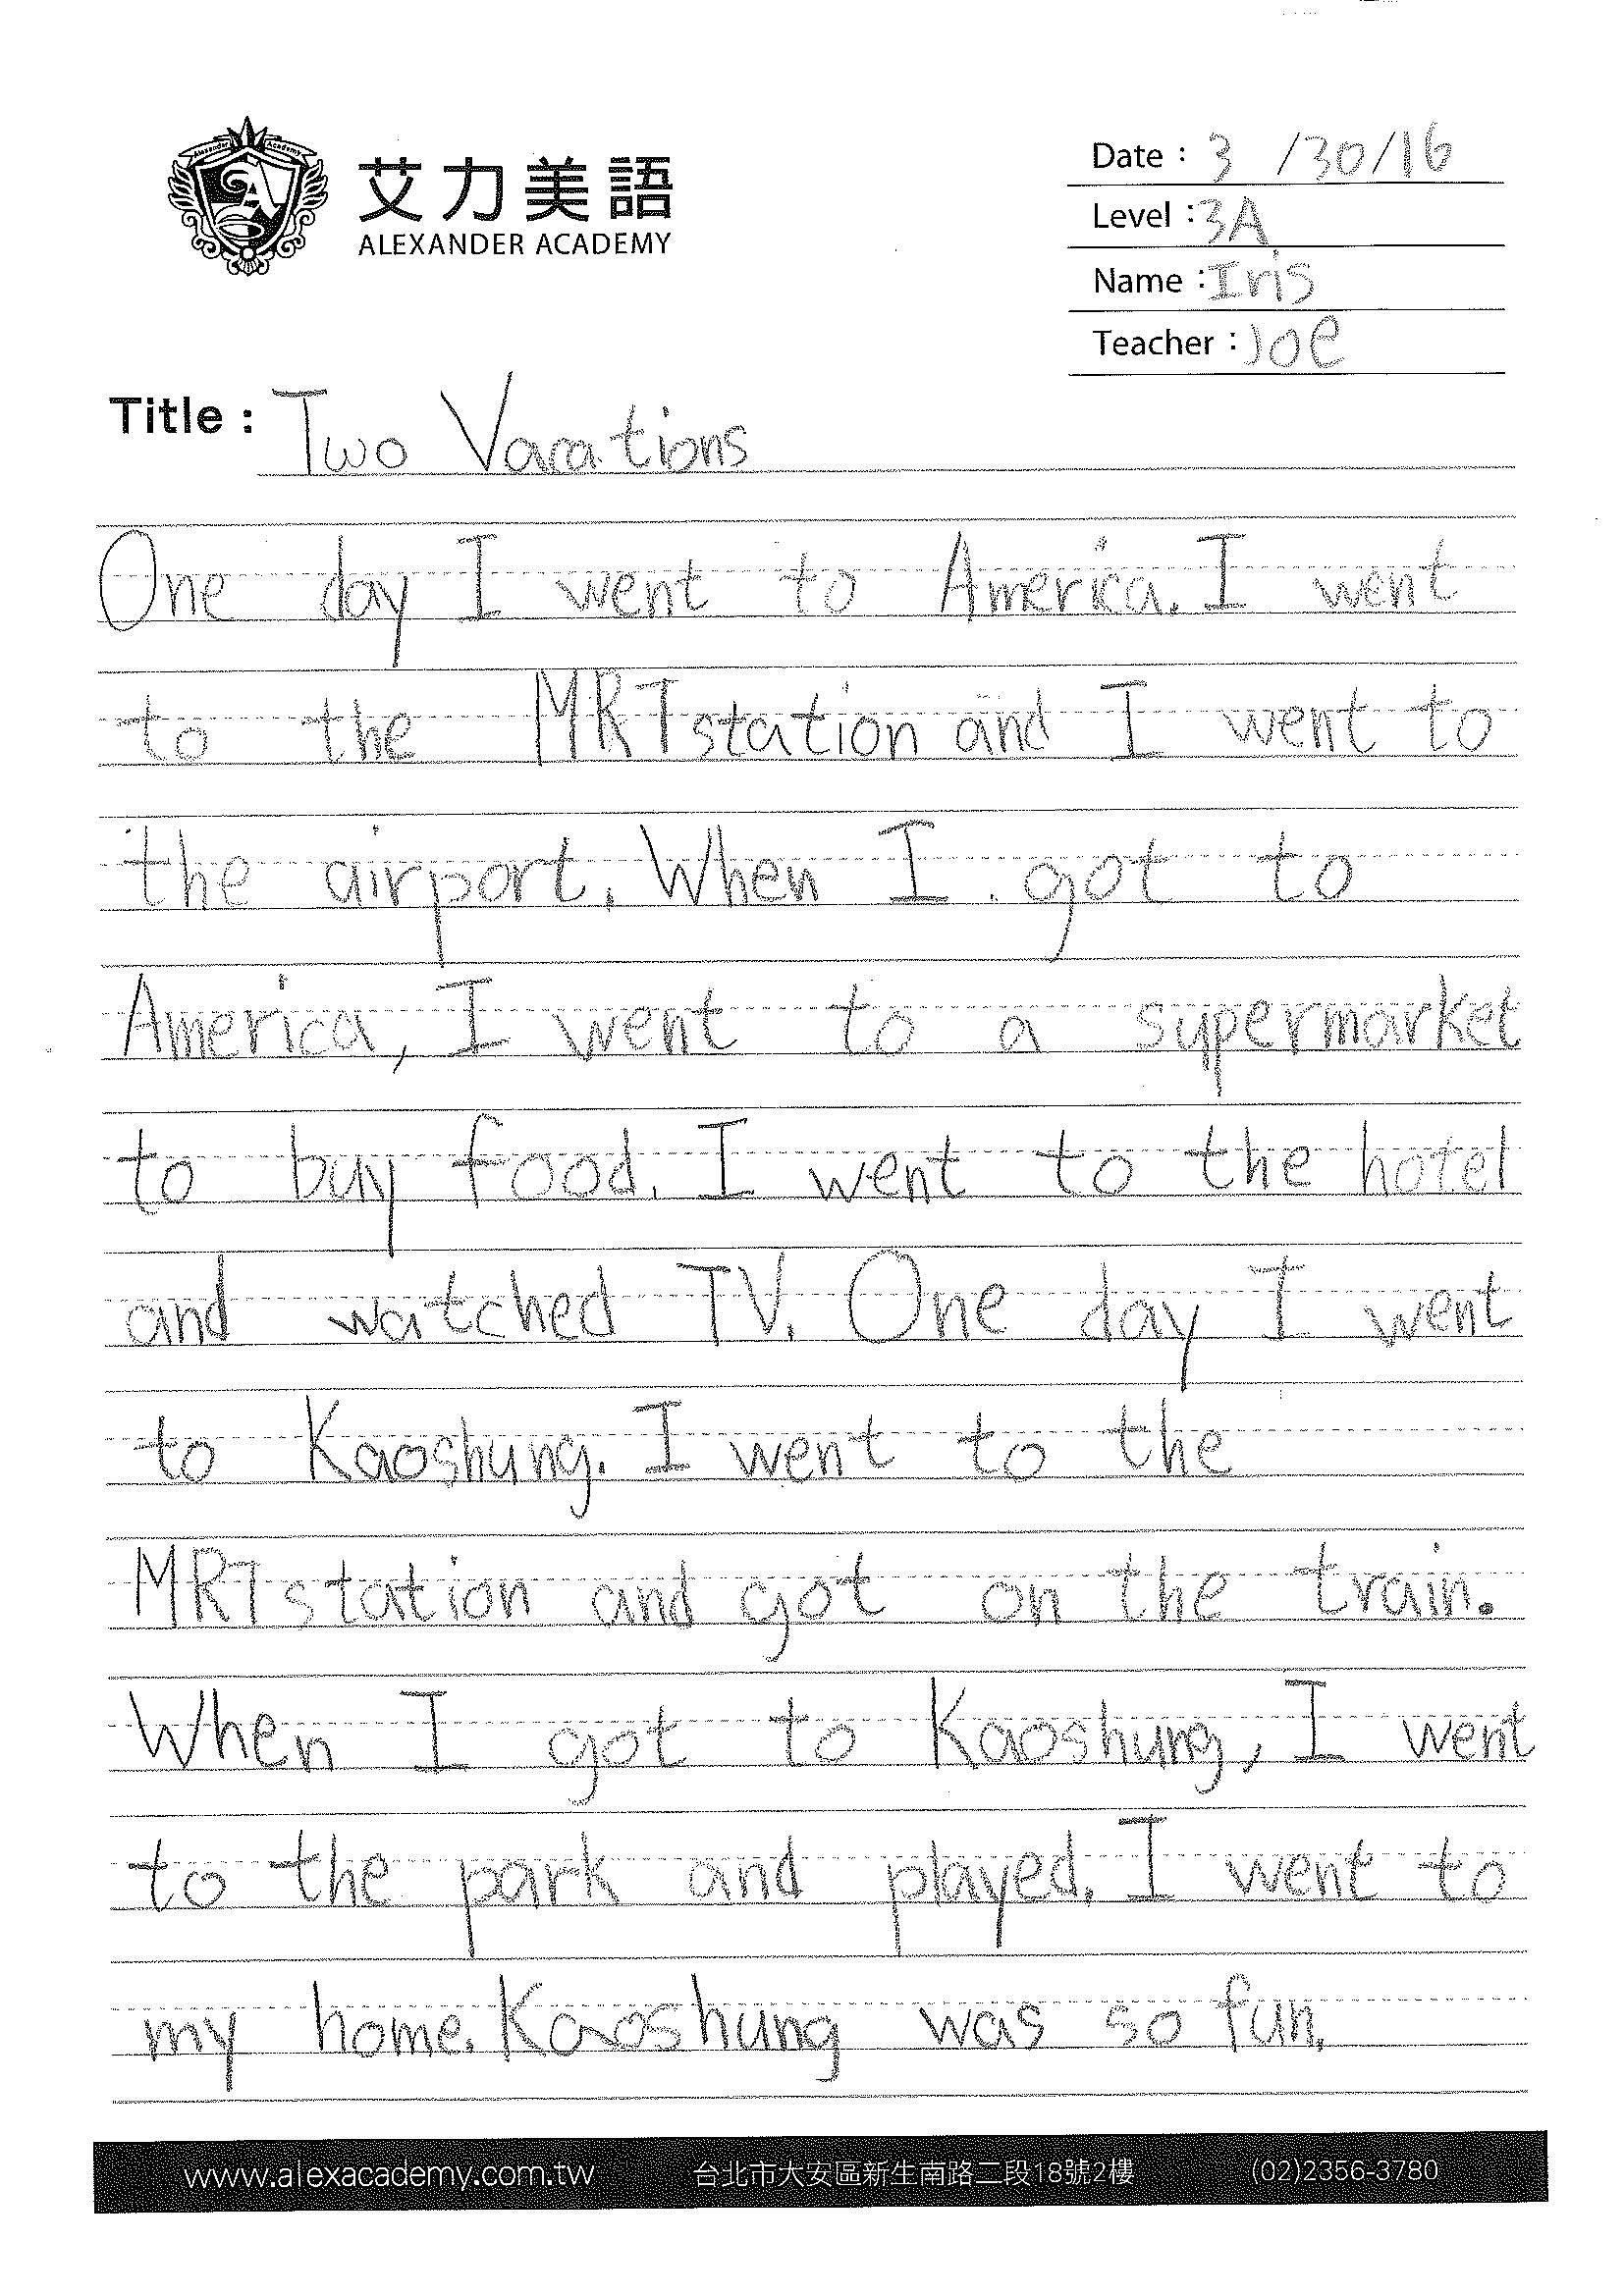 Alexander Academy
艾力美語
ALEXANDER ACADEMY
Date : 3 /30/16
Level : 3A
Name : Iris
Teacher : Joe
Title : Two Vacations
One day I went to America. I went
to the MRT station and I went to
the airport. When I got to
America, I went to a supermarket
to buy food. I went to the hotel
and watched TV. One day I went
to Kaoshung. I went to the
MRT station and got on the train.
When I got to Kaoshung, I went
to the park and played. I went to
my home. Kaoshung was so fun.
www.alexacademy.com.tw 台北市大安區新生南路二段18號2樓 (02)2356-3780